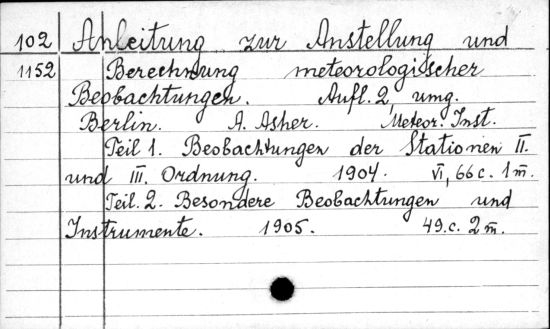 102 Anleitung zur Anstellung und
1152 Berechnung meteorologischer
Beobachtungen. Aufl. 2, umg.
Berlin. A. Asher. Meteor. Inst.
Teil 1. Beobachtungen der Stationen II.
und III. Ordnung. 1904. VI, 66 c. 1 т.
Teil. 2. Besondere Beobachtungen und
Instrumente. 1905. 49. c. 2 т.